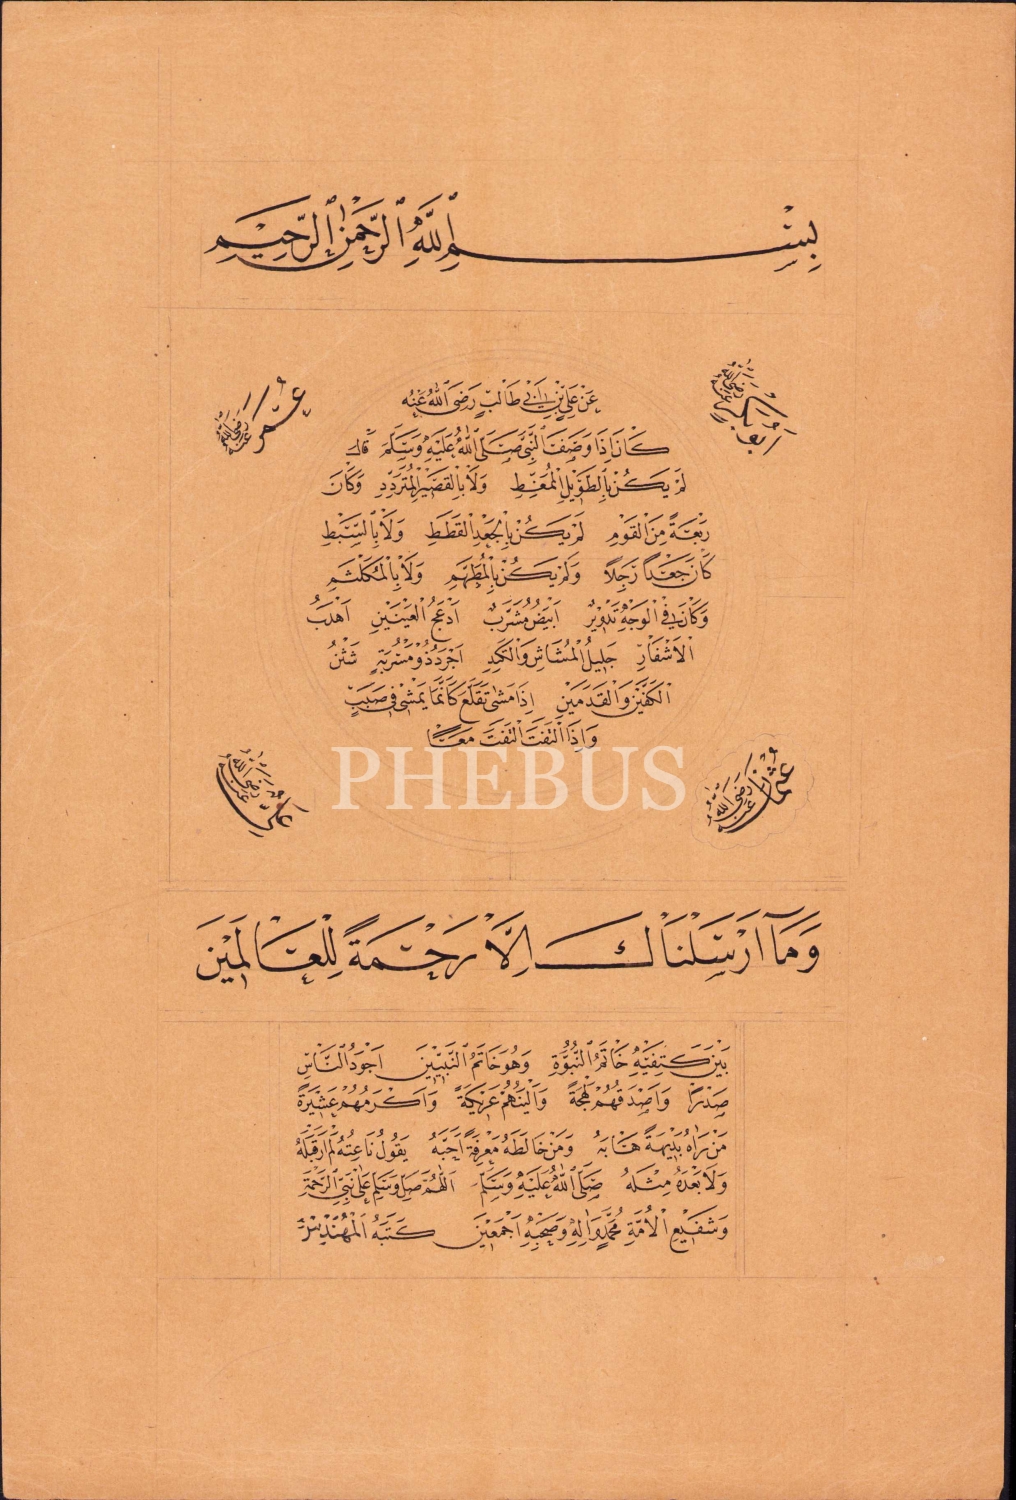 بِسْمِ اللَّهِ الرَّحْمٰنِ الرَّحِيمِ
ابو بكر رضي الله عنه
عمر رضي الله عنه
عَنْ عَلِيِّ بْنِ اَبِي طَالِبٍ رَضِيَ اللَّهُ عَنْهُ
كَانَ اِذَا وَصَفَ النَّبِيَّ صَلَّى اللَّهُ عَلَيْهِ وَسَلَّمَ قَالَ
لَمْ يَكُنْ بِالطَّوِيلِ الْمُمَّغِطِ وَلَا بِالْقَصِيرِ الْمُتَرَدِّدِ وَكَانَ
رَبْعَةً مِنَ الْقَوْمِ لَمْ يَكُنْ بِالْجَعْدِ الْقَطَطِ وَلَا بِالسَّبْطِ
كَانَ جَعْدًا رَجِلًا وَلَمْ يَكُنْ بِالْمُطَهَّمِ وَلَا بِالْمُكَلْثَمِ
وَكَانَ فِي الْوَجْهِ تَدْوِيرٌ اَبْيَضُ مُشَرَّبٌ اَدْعَجُ الْعَيْنَيْنِ اَهْدَبُ
الْاَشْفَارِ جَلِيلُ الْمُشَاشِ وَالْكَتَدِ اَجْرَدُ ذُو مَسْرُبَةٍ شَثْنُ
الْكَفَّيْنِ وَالْقَدَمَيْنِ اِذَا مَشٰى تَقَلَّعَ كَاَنَّمَا يَمْشِي فِي صَبَبٍ
وَاِذَا الْتَفَتَ الْتَفَتَ مَعًا
PHEBUS
عثمان رضي الله عنه
علي رضي الله عنه
وَمَا اَرْسَلْنَاكَ اِلَّا رَحْمَةً لِلْعَالَمِينَ
بَيْنَ كَتِفَيْهِ خَاتَمُ النُّبُوَّةِ وَهُوَ خَاتَمُ النَّبِيِّينَ اَجْوَدُ النَّاسِ
صَدْرًا وَاَصْدَقُهُمْ لَهْجَةً وَاَلْيَنُهُمْ عَرِيكَةً وَاَكْرَمُهُمْ عَشِيرَةً
مَنْ رَاٰهُ بَدِيهَةً هَابَهُ وَمَنْ خَالَطَهُ مَعْرِفَةً اَحَبَّهُ يَقُولُ نَاعِتُهُ لَمْ اَرَ قَبْلَهُ
وَلَا بَعْدَهُ مِثْلَهُ صَلَّى اللَّهُ عَلَيْهِ وَسَلَّمَ اَللّٰهُمَّ صَلِّ وَسَلِّمْ عَلٰى نَبِيِّ الرَّحْمَةِ
وَشَفِيعِ الْاُمَّةِ مُحَمَّدٍ وَاٰلِهِ وَصَحْبِهِ اَجْمَعِينَ كَتَبَهُ الْمُهَنْدِسُ